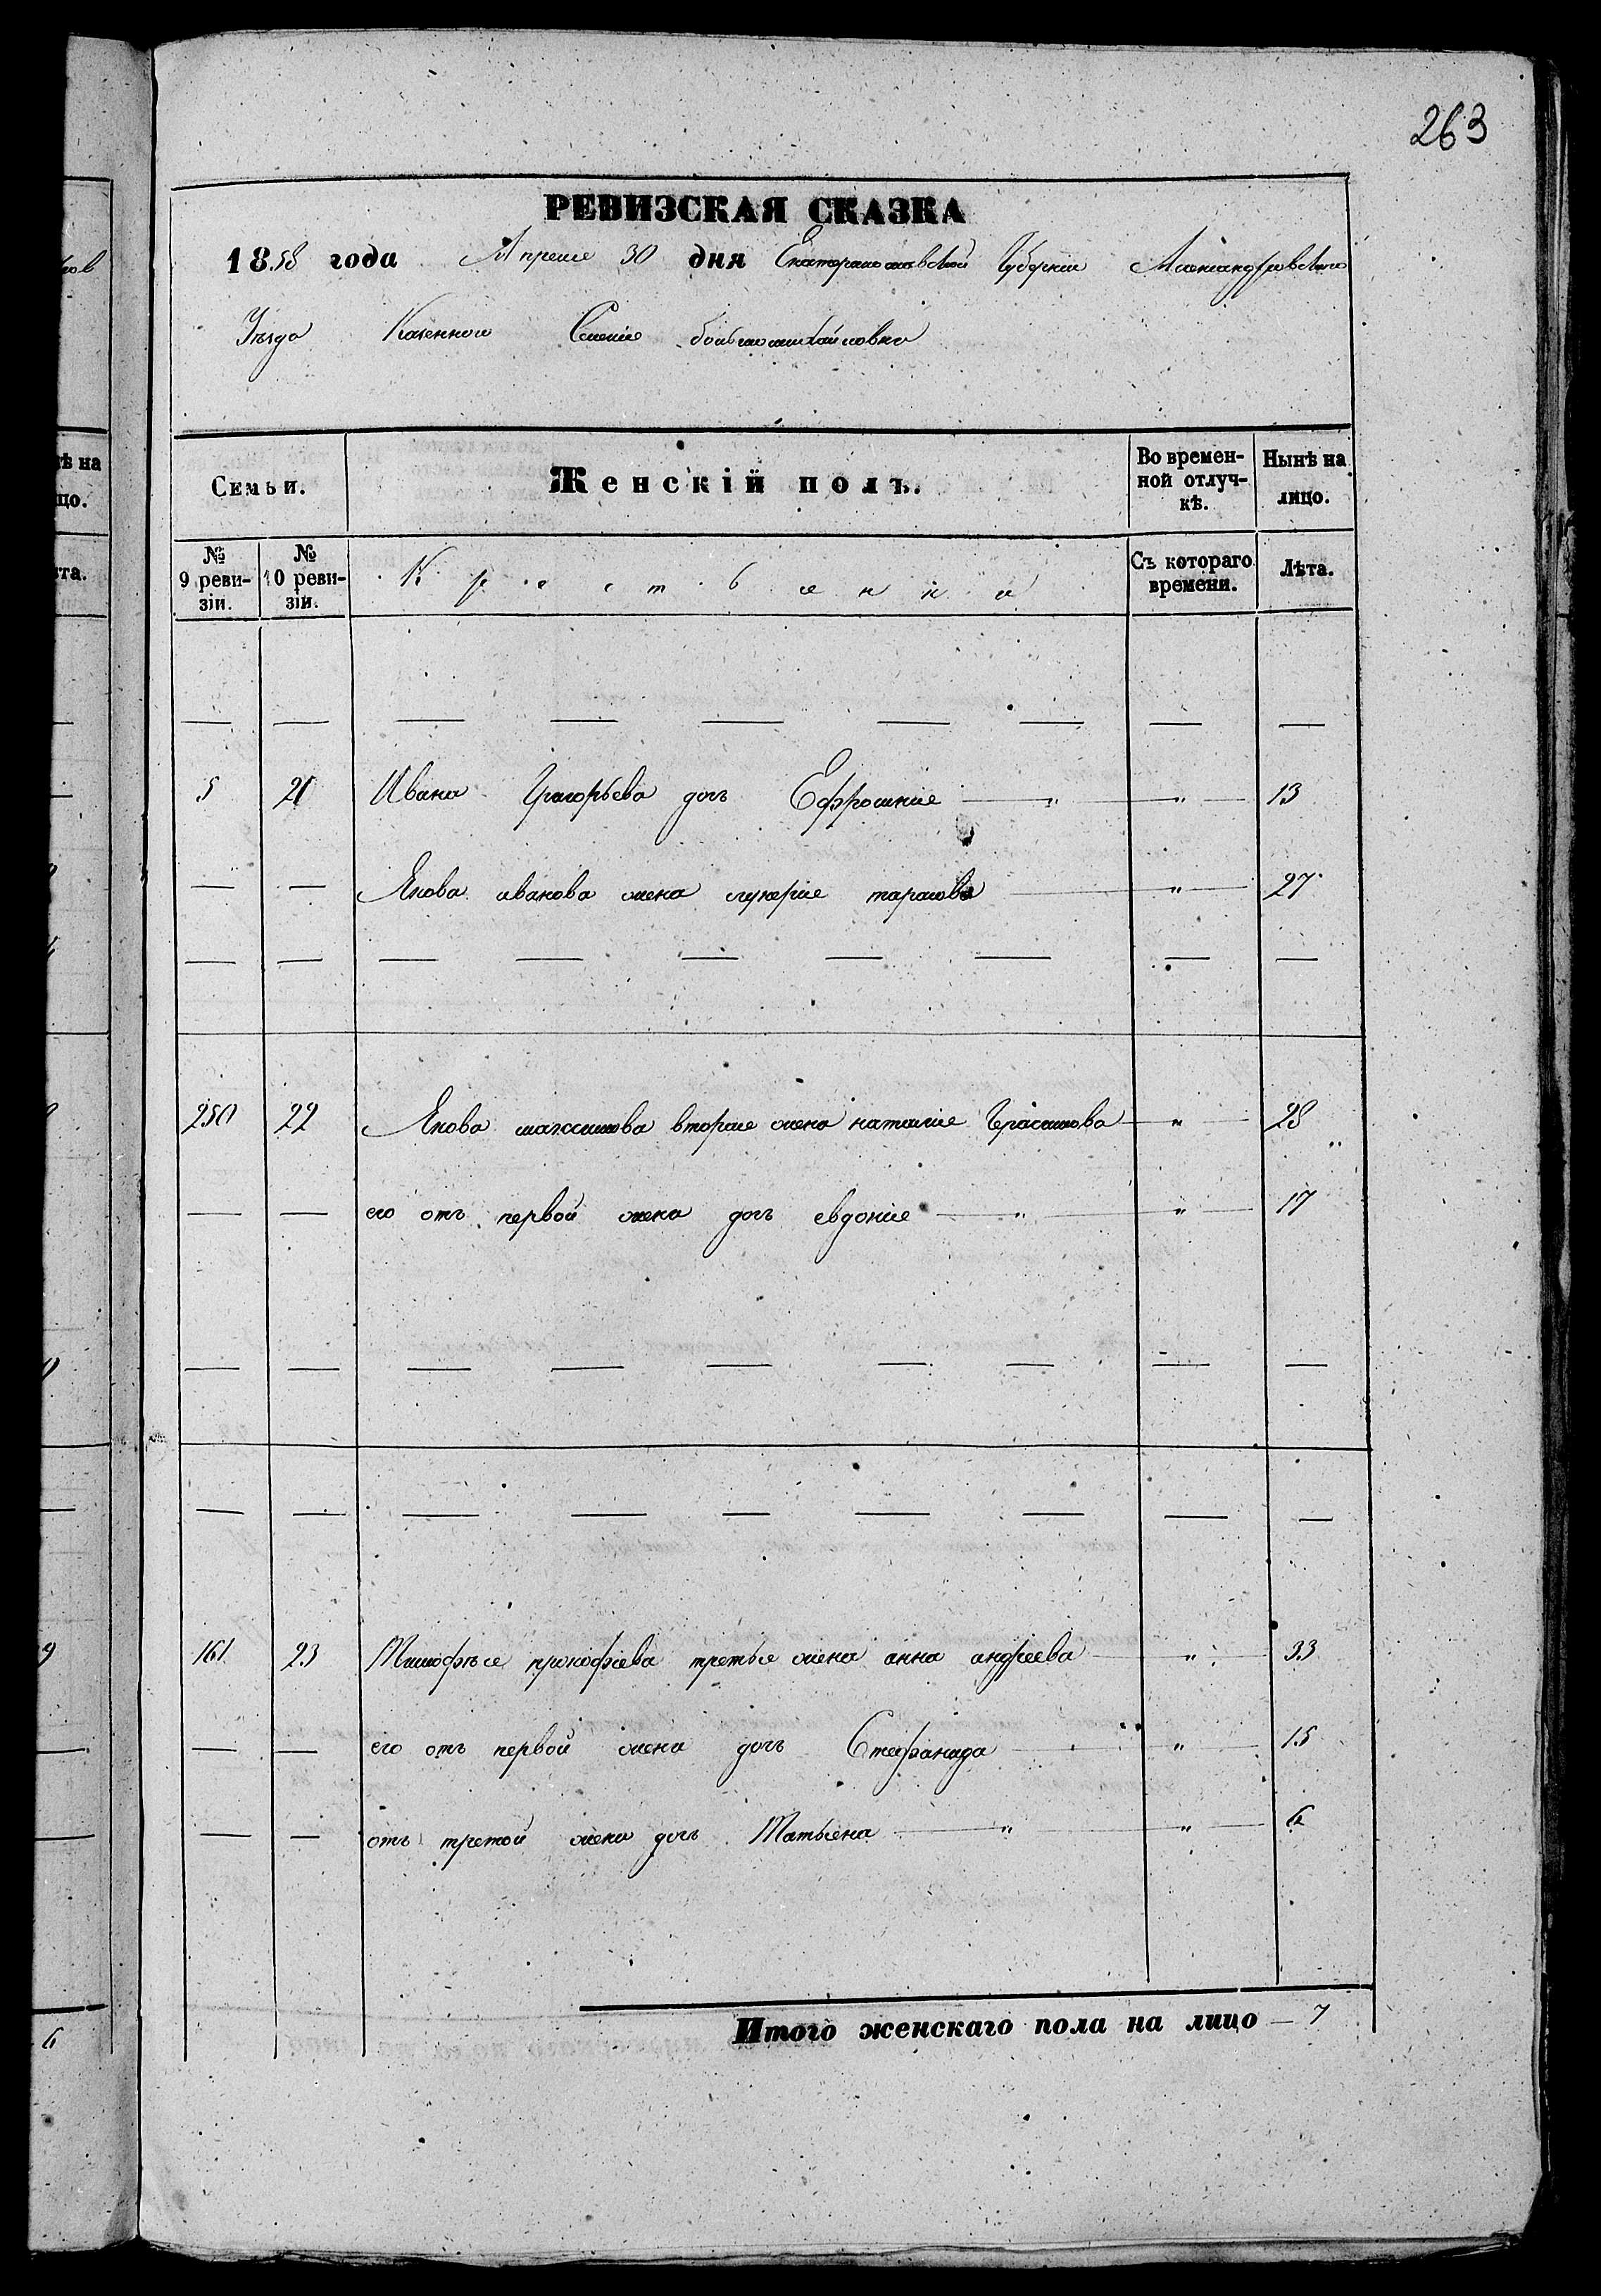 263
РЕВИЗСКАЯ СКАЗКА
1858 года Апреля 30 дня Екатеринославской Губернии Александровского
Уезда Казенного Селения большомихайловки
Семьи. Женскій полъ. Во времен-ной отлуч-кѣ. Нынѣ на лицо.
№ 9 реви-зіи. № 10 реви-зіи. Крестьянки Съ котораго времени. Лѣта.
5 21 Ивана Григорьева дочь Ефросиние " " 13
Якова иванова жена лукерие тарасова " 27
250 22 Якова максимова вторая жена наталие Герасимова " 28
его отъ первой жены дочь евдокие " " 17
161 23 Тимофѣя прокофиева третье жена анна андреева " 33
его отъ первой жены дочь Стефанида " 15
отъ третой жены дочь Татьяна " " 6
Итого женскаго пола на лицо — 7
ѣ на
цо.
та.
6